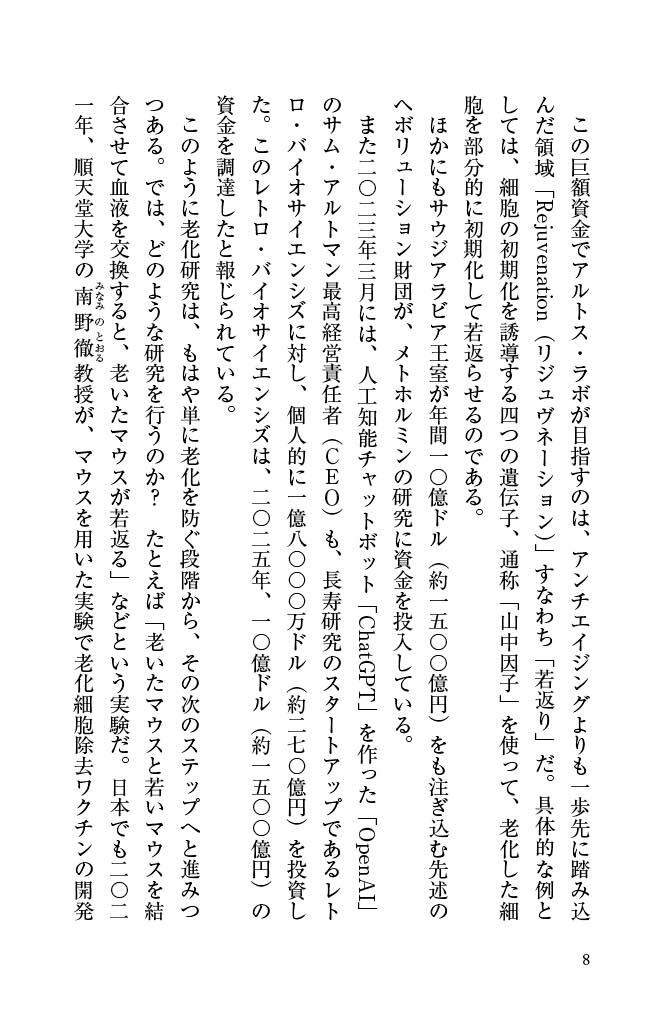 この巨額資金でアルトス・ラボが目指すのは、アンチエイジングよりも一歩先に踏み込
んだ領域「Rejuvenation（リジュヴネーション）」すなわち「若返り」だ。具体的な例と
しては、細胞の初期化を誘導する四つの遺伝子、通称「山中因子」を使って、老化した細
胞を部分的に初期化して若返らせるのである。
ほかにもサウジアラビア王室が年間一〇億ドル（約一五〇〇億円）をも注ぎ込む先述の
ヘボリューション財団が、メトホルミンの研究に資金を投入している。
また二〇二三年三月には、人工知能チャットボット「ChatGPT」を作った「OpenAI」
のサム・アルトマン最高経営責任者（ＣＥＯ）も、長寿研究のスタートアップであるレト
ロ・バイオサイエンシズに対し、個人的に一億八〇〇〇万ドル（約二七〇億円）を投資し
た。このレトロ・バイオサイエンシズは、二〇二五年、一〇億ドル（約一五〇〇億円）の
資金を調達したと報じられている。
このように老化研究は、もはや単に老化を防ぐ段階から、その次のステップへと進みつ
つある。では、どのような研究を行うのか？　たとえば「老いたマウスと若いマウスを結
合させて血液を交換すると、老いたマウスが若返る」などという実験だ。日本でも二〇二
一年、順天堂大学の南野徹教授が、マウスを用いた実験で老化細胞除去ワクチンの開発
みなみ の とおる
8